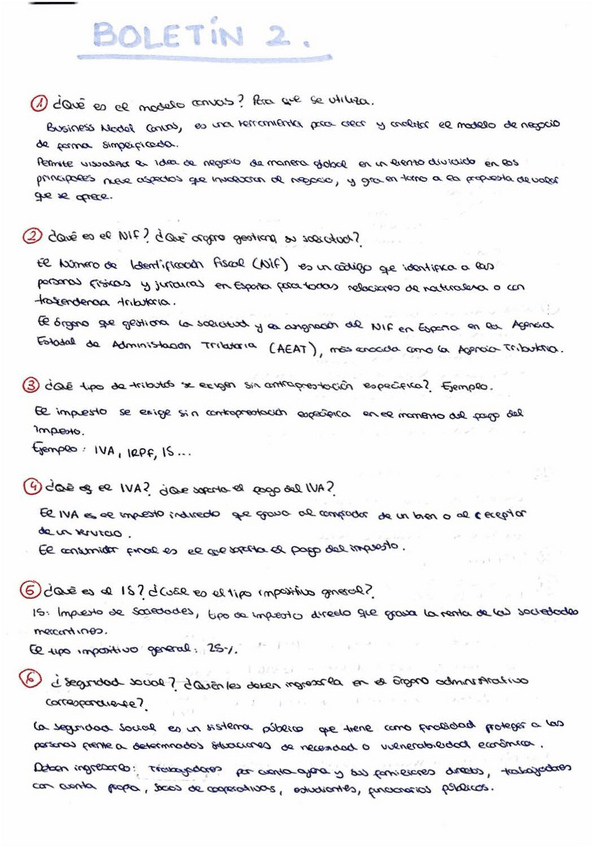 BOLETÍN 2.
① ¿Qué es el modelo canvas? Para que se utiliza.
Business Model Canvas, es una herramienta para crear y analizar el modelo de negocio
de forma simplificada.
Permite visualizar la idea de negocio de manera global en un lienzo dividido en los
principales nueve aspectos que involucran al negocio, y gira en torno a la propuesta de valor
que se ofrece.
② ¿Qué es el NIF? ¿Qué órgano gestiona su solicitud?
El Número de Identificación Fiscal (NIF) es un código que identifica a las
personas físicas y jurídicas en España para todas relaciones de naturaleza o con
trascendencia tributaria.
El órgano que gestiona la solicitud y la asignación del NIF en España en la Agencia
Estatal de Administración Tributaria (AEAT), más conocida como la Agencia Tributaria.
③ ¿Qué tipo de tributos se exigen sin contraprestación específica? Ejemplo.
El impuesto se exige sin contraprestación específica en el momento del pago del
impuesto.
Ejemplo: IVA, IRPF, IS...
④ ¿Qué es el IVA? ¿Que soporta el pago del IVA?
El IVA es el impuesto indirecto que grava al comprador de un bien o al receptor
de un servicio.
El consumidor final es el que soporta el pago del impuesto.
⑤ ¿Qué es el IS? ¿Cuál es el tipo impositivo general?
IS: Impuesto de Sociedades, tipo de impuesto directo que grava la renta de las sociedades
mercantiles.
El tipo impositivo general: 25%.
⑥ ¿Seguridad social? ¿Quienles deben ingresarla en el órgano administrativo
correspondiente?
La seguridad social es un sistema público que tiene como finalidad proteger a las
personas frente a determinadas situaciones de necesidad o vulnerabilidad económica.
Deben ingresarlo: Trabajadores por cuenta ajena y sus familiares directos, trabajadores
con cuenta propia, socios de cooperativas, estudiantes, funcionarios públicos.